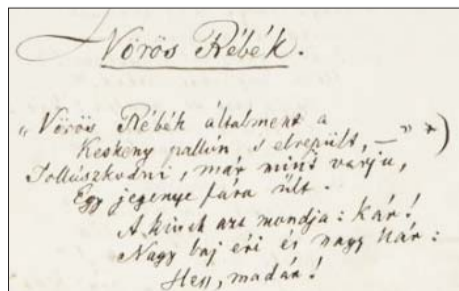 Vörös Rébék.
„Vörös Rébék általment a
Keskeny pallon s elrepült, —” *)
Tollászkodni, már mint varju,
Egy jegenye fára ült.
A kinek azt mondja: kár!
Nagy baj éri és nagy kár:
Hess, madár!